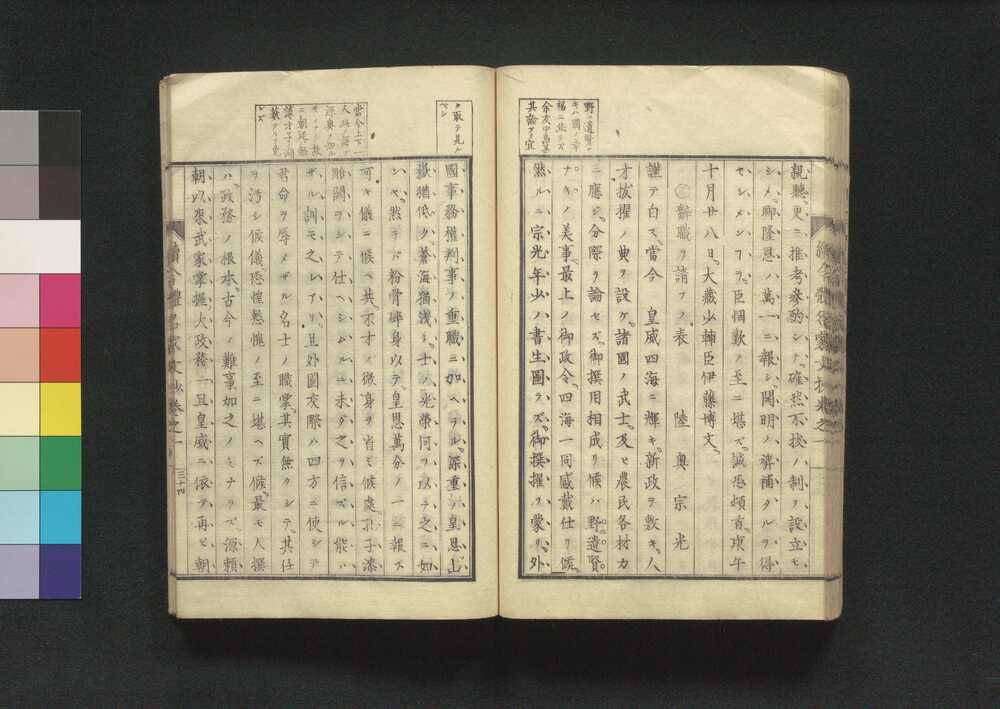 親聽、更ニ推考參酌シテ、確然不抜ノ制ヲ設立セ
シメ、聊隆恩ノ萬一ニ報シ、開明ノ裨補タルヲ得
セシメンヿヲ、臣悃歎ノ至ニ堪ズ、誠恐頓首、庚午
十月廿八日、大藏少輔臣伊藤博文、
○辭職ヲ請フノ表　陸奥宗光
謹テ白ス、當今　皇威四海ニ輝キ、新政ヲ敷キ、人
才拔擢ノ典ヲ設ケ、諸國ノ武士、及ヒ農民各材力
ニ應ジ、分際ヲ論セズ、御撰用相成リ候ハバ野ニ遺賢
ナキノ美事、最上ノ御政令、四海一同感戴仕リ候、
然ルニ宗光年少ノ書生圖ラズ、御撰擢ヲ蒙リ、外
野ニ遺賢ナ
キハ國ノ幸
福ニ此ラズ
其論アリ宜
ク取テ見ル
ベシ
國事務權判事ノ重職ニ加ヘラル、深重ノ皇恩山
嶽猶低ク、蒼海猶淺シ、士ノ光榮何ヲ以テ之ニ如
ンヤ、然ラバ粉骨碎身以テ、皇恩萬分ノ一ニ報ス
可キ儀ニ候ヘ共、不才ノ微身ヲ省ミ候處、孔子漆
雕開ヲシテ仕ヘシムルニ未ダ之ヲ信ズル能ハ
ザルノ訓モ之レアリ、且外國交際ハ四方ニ使シテ
君命ヲ辱メザル名士ノ職掌、其實無クシテ、其任
ヲ汚シ候儀恐惶慙愧ノ至ニ堪ヘズ候、最モ人撰
ハ政務ノ根本、古今ノ難事如之ノミナラズ、源賴
朝以來武家掌握大政務一旦皇威ニ依テ再ビ朝
當今上下一
續今體名家文抄卷之一
三十四